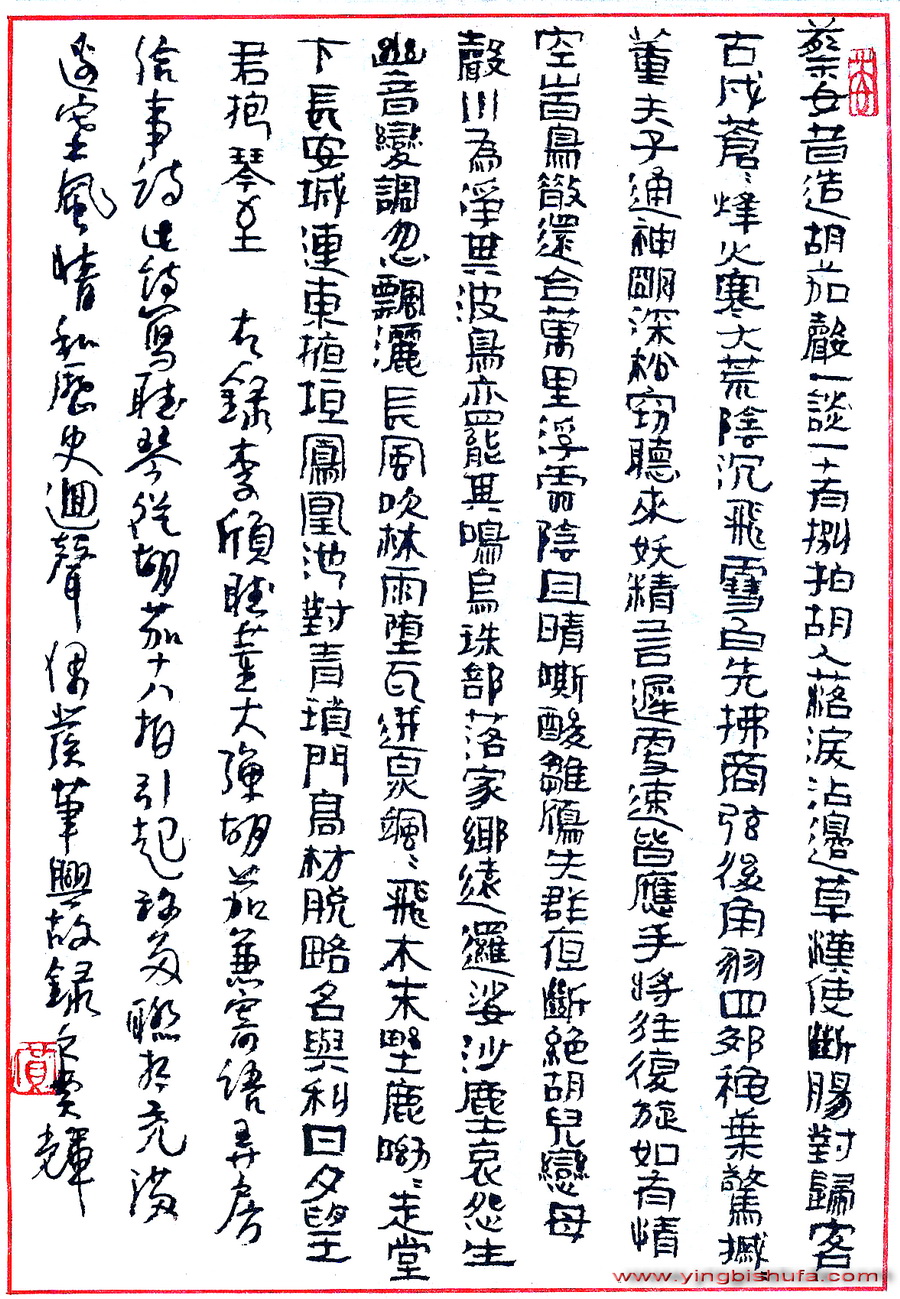 蔡女昔造胡笳聲一談一十有捌拍胡人落淚沾邊草漢使斷腸對歸客
古戍蒼々烽火寒大荒陰沉飛雪白先拂商弦後角羽四郊穐葉驚摵々
董夫子通神朙深松窃聽來妖精言遲更速皆應手將往復旋如有情
空山百鳥散還合萬里浮雲陰且晴嘶酸雛鴈失群夜斷絕胡兒戀母
聲川為淨其波鳥亦罷其鳴烏珠部落家鄉遠邏娑沙塵哀怨生
幽音變調忽飄灑長風吹林雨墮瓦迸泉颯々飛木末野鹿呦々走堂
下長安城連東掖垣鳳凰池對青瑣門高材脫略名與利日夕望
君抱琴至 右錄李頎聽董大彈胡笳兼寄語弄房
給事詩此詩寫聽琴從胡笳十八拍引起許多聯想充滿
邊塞風情和歷史迴聲偶發筆興故錄之黃輝
黃
www.yingbishufa.com